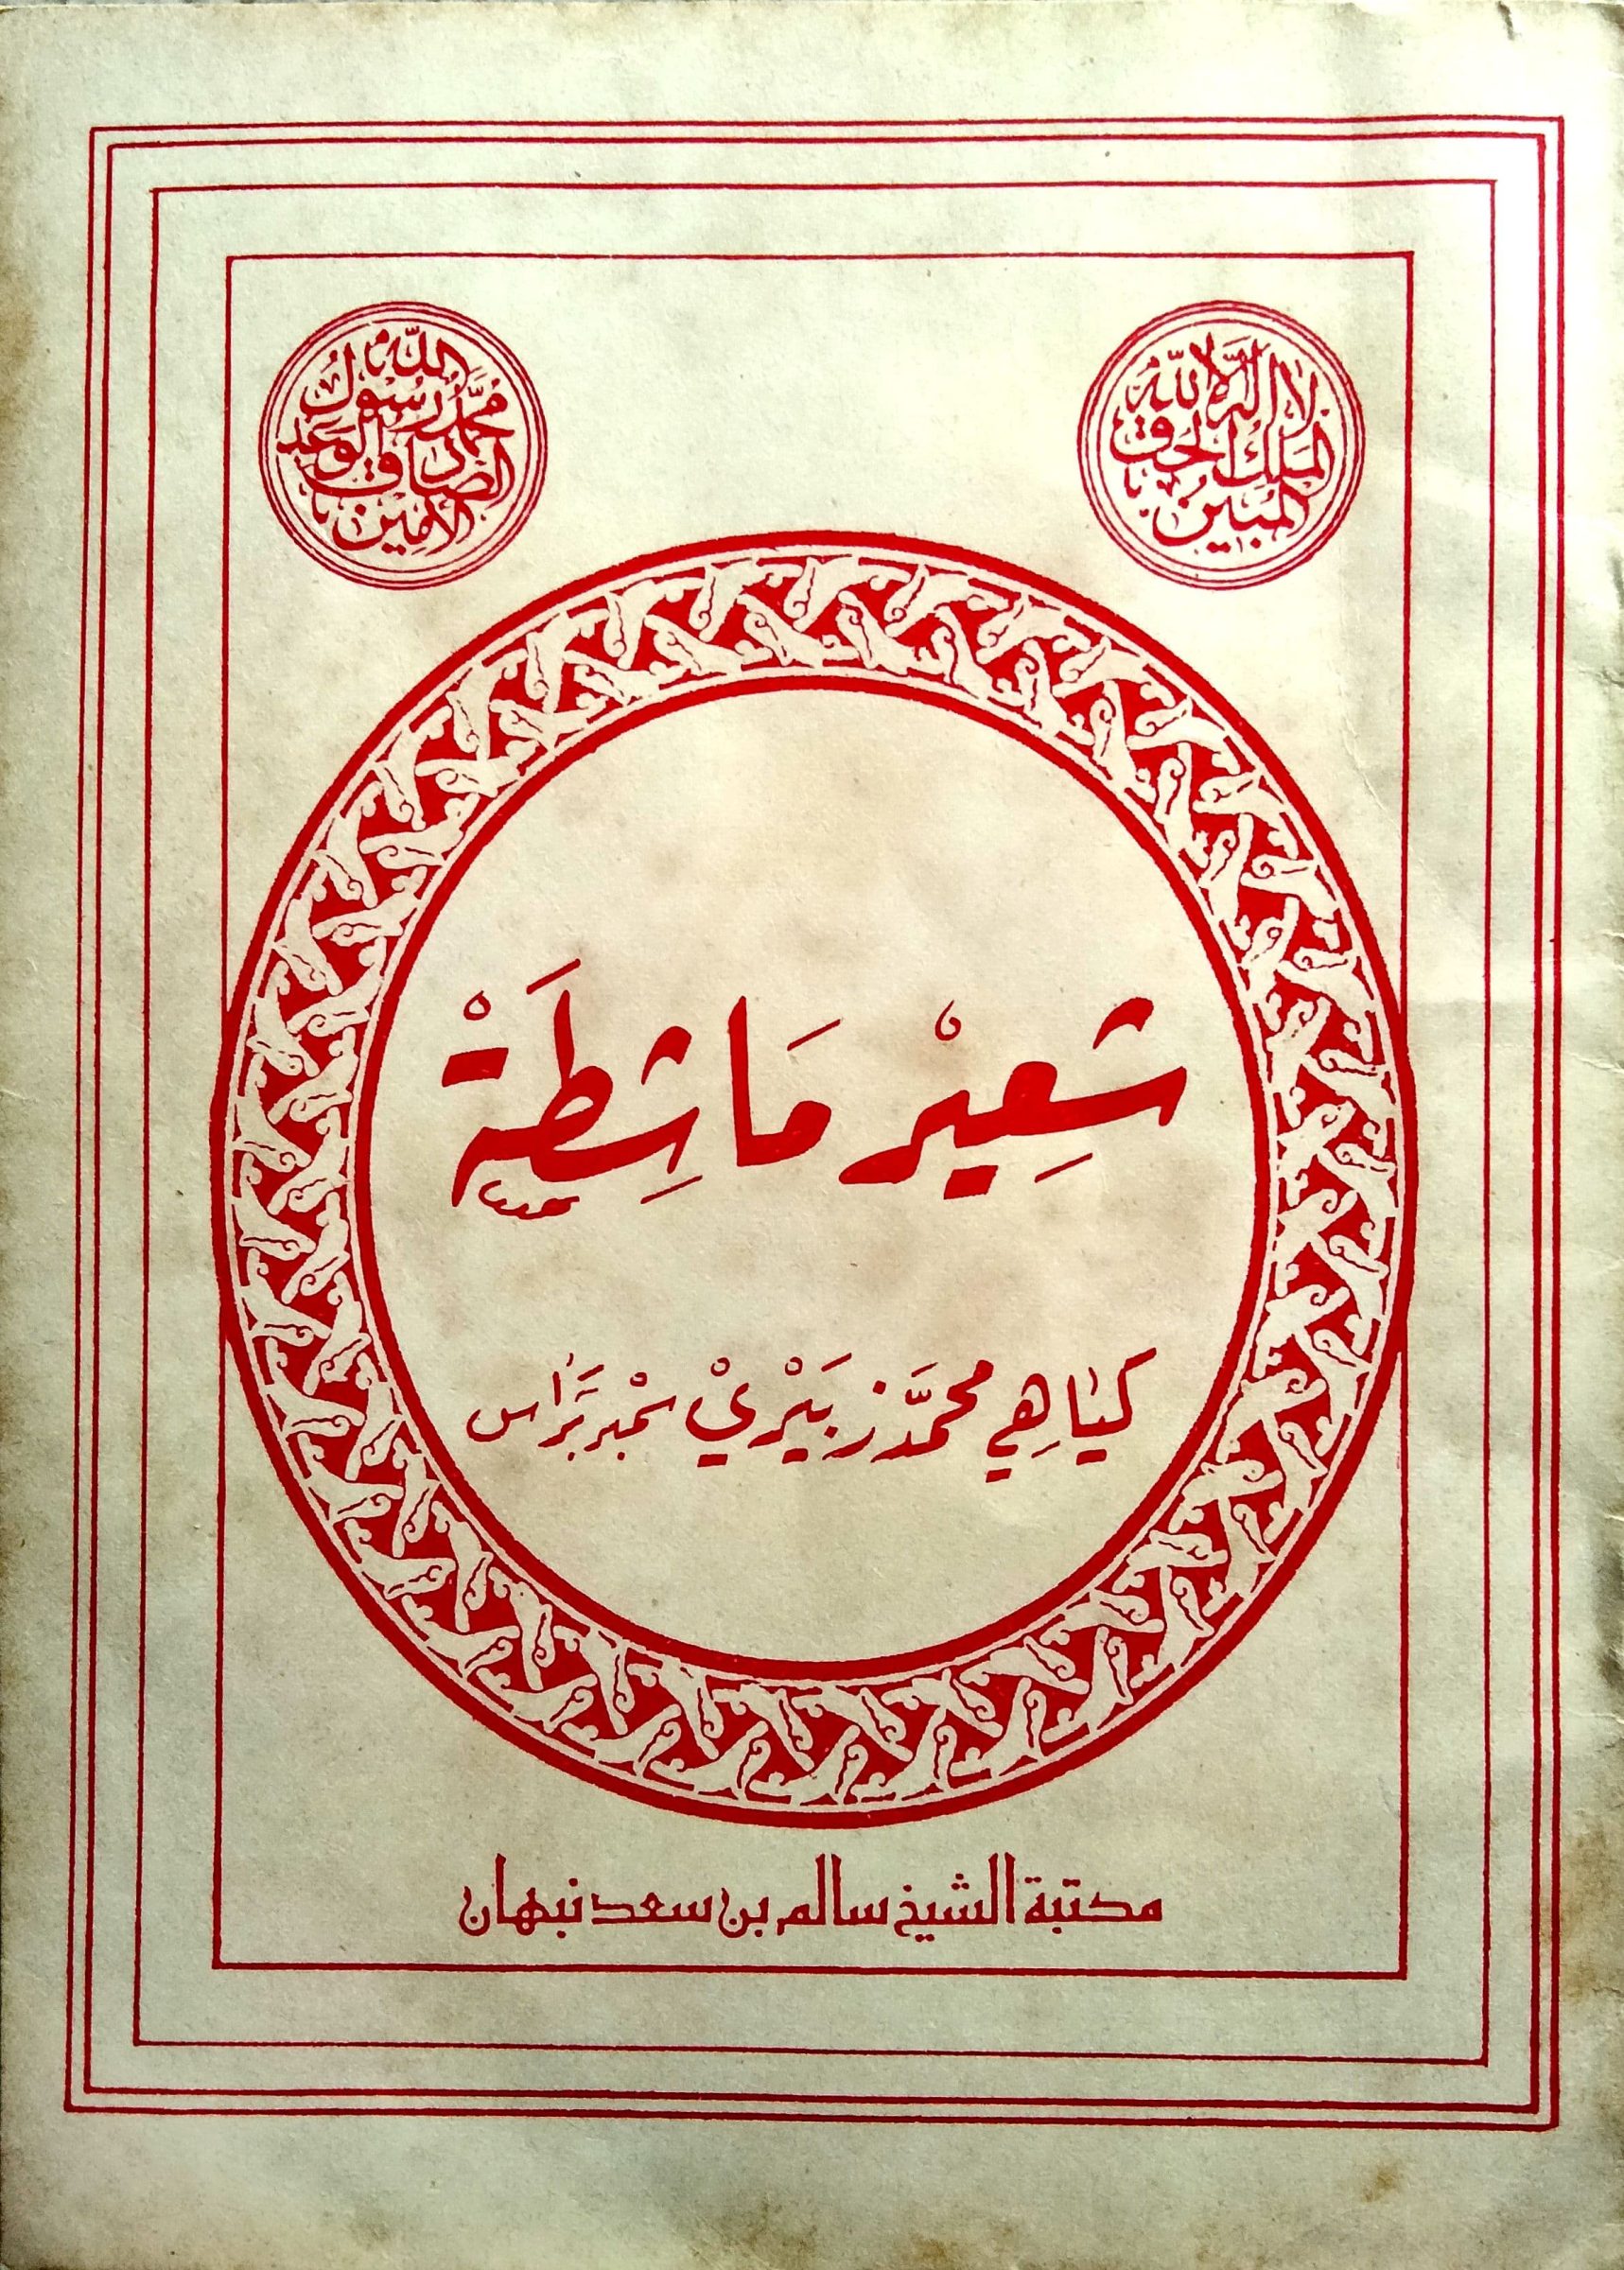 لا إله إلا الله
الملك الحق
المبين
محمد رسول الله
الصادق الوعد
الأمين
شَعِيْر مَاشِطَةْ
كياهي محمد زبَيْريْ سمْبر بَرَاس
مكتبة الشيخ سالم بن سعد نبهان